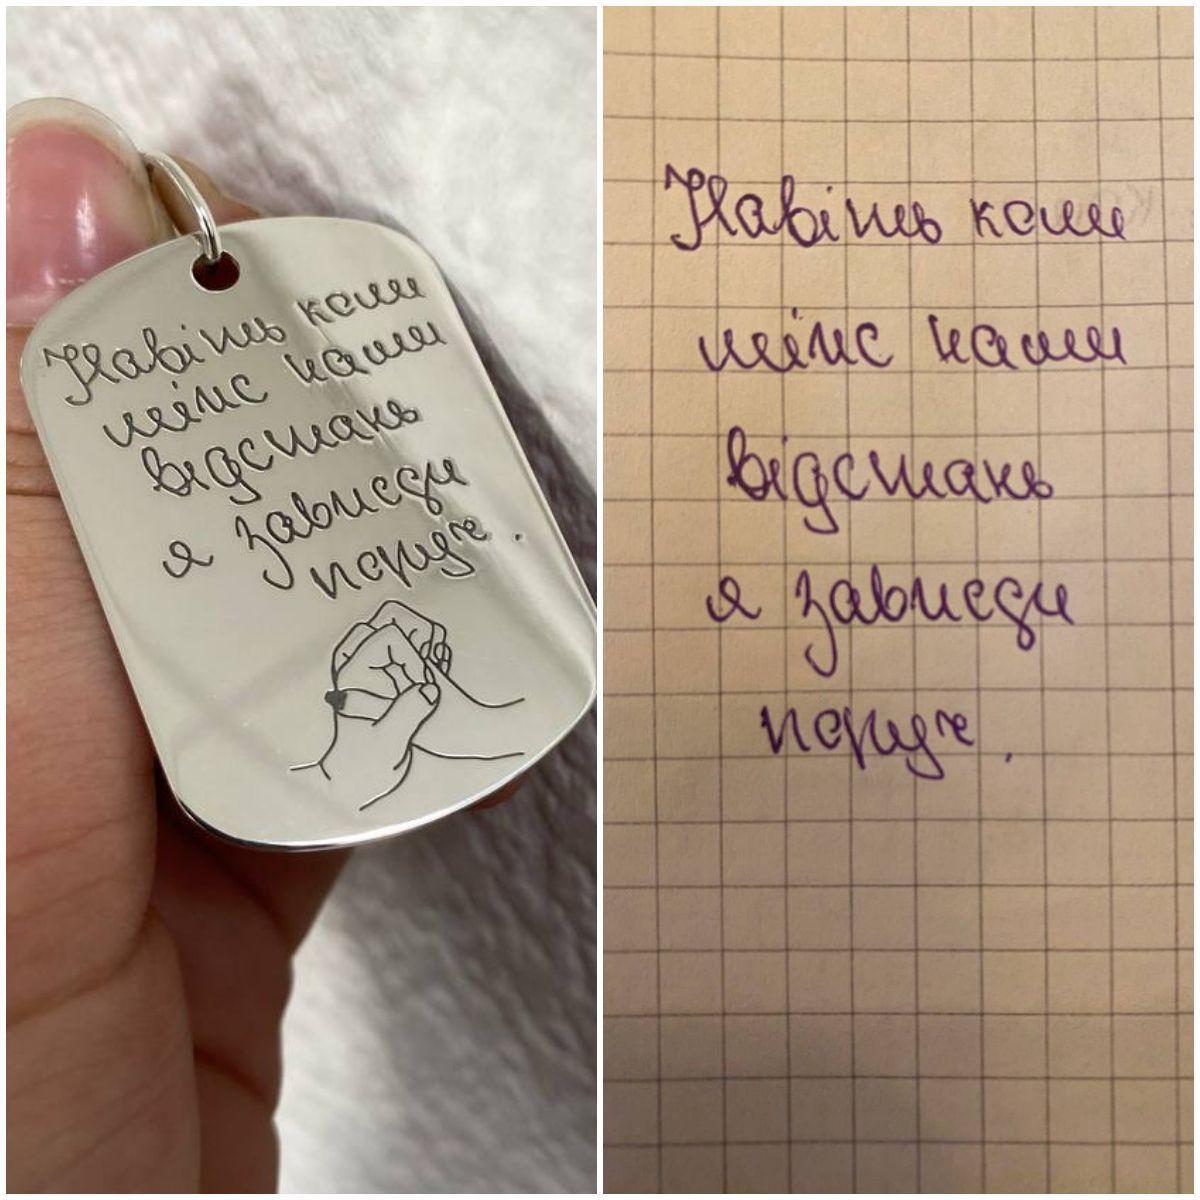 Навіть коли
між нами
відстань
я завжди
поруч.
Навіть коли
між нами
відстань
я завжди
поруч.